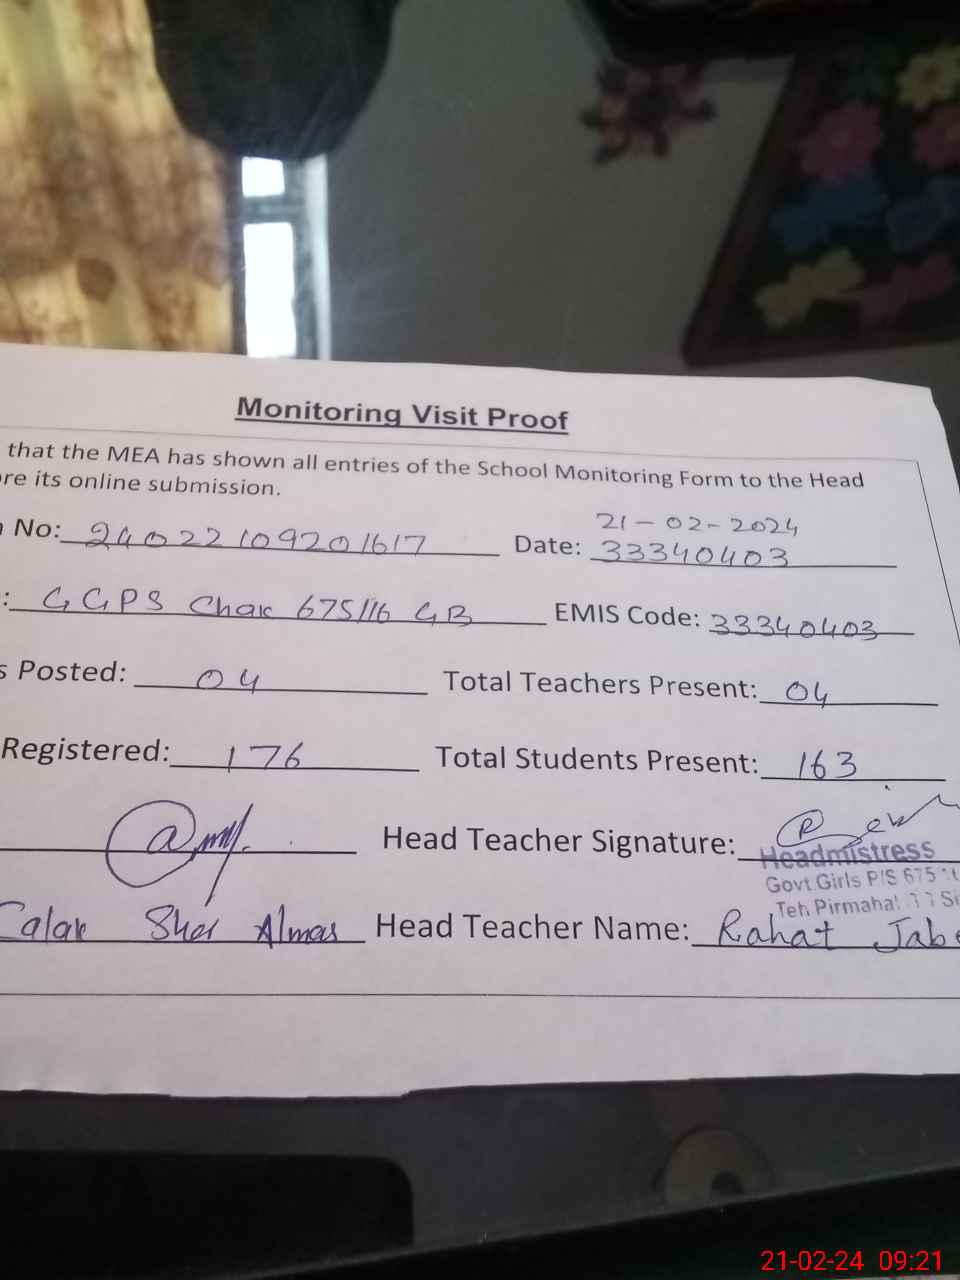 Monitoring Visit Proof
that the MEA has shown all entries of the School Monitoring Form to the Head
re its online submission.
21-02-2024
No: 2402210920 1617 Date: 33340403
: GGPS Chak 675/16 GB EMIS Code: 33340403
s Posted: 04 Total Teachers Present: 04
Registered: 176 Total Students Present: 163
Head Teacher Signature:
Headmistress
Govt Girls P/S 675
Teh Pirmahal
Sher Almas Head Teacher Name: Rahat Jab
21-02-24 09:21